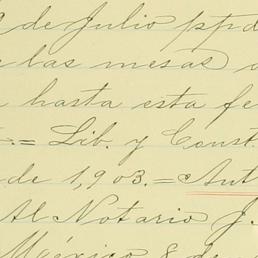 de Julio ppd
las mesas
hasta esta fe
= Lib. y Const.
de 1,903.= Aut
Al Notario J.
México 8 de